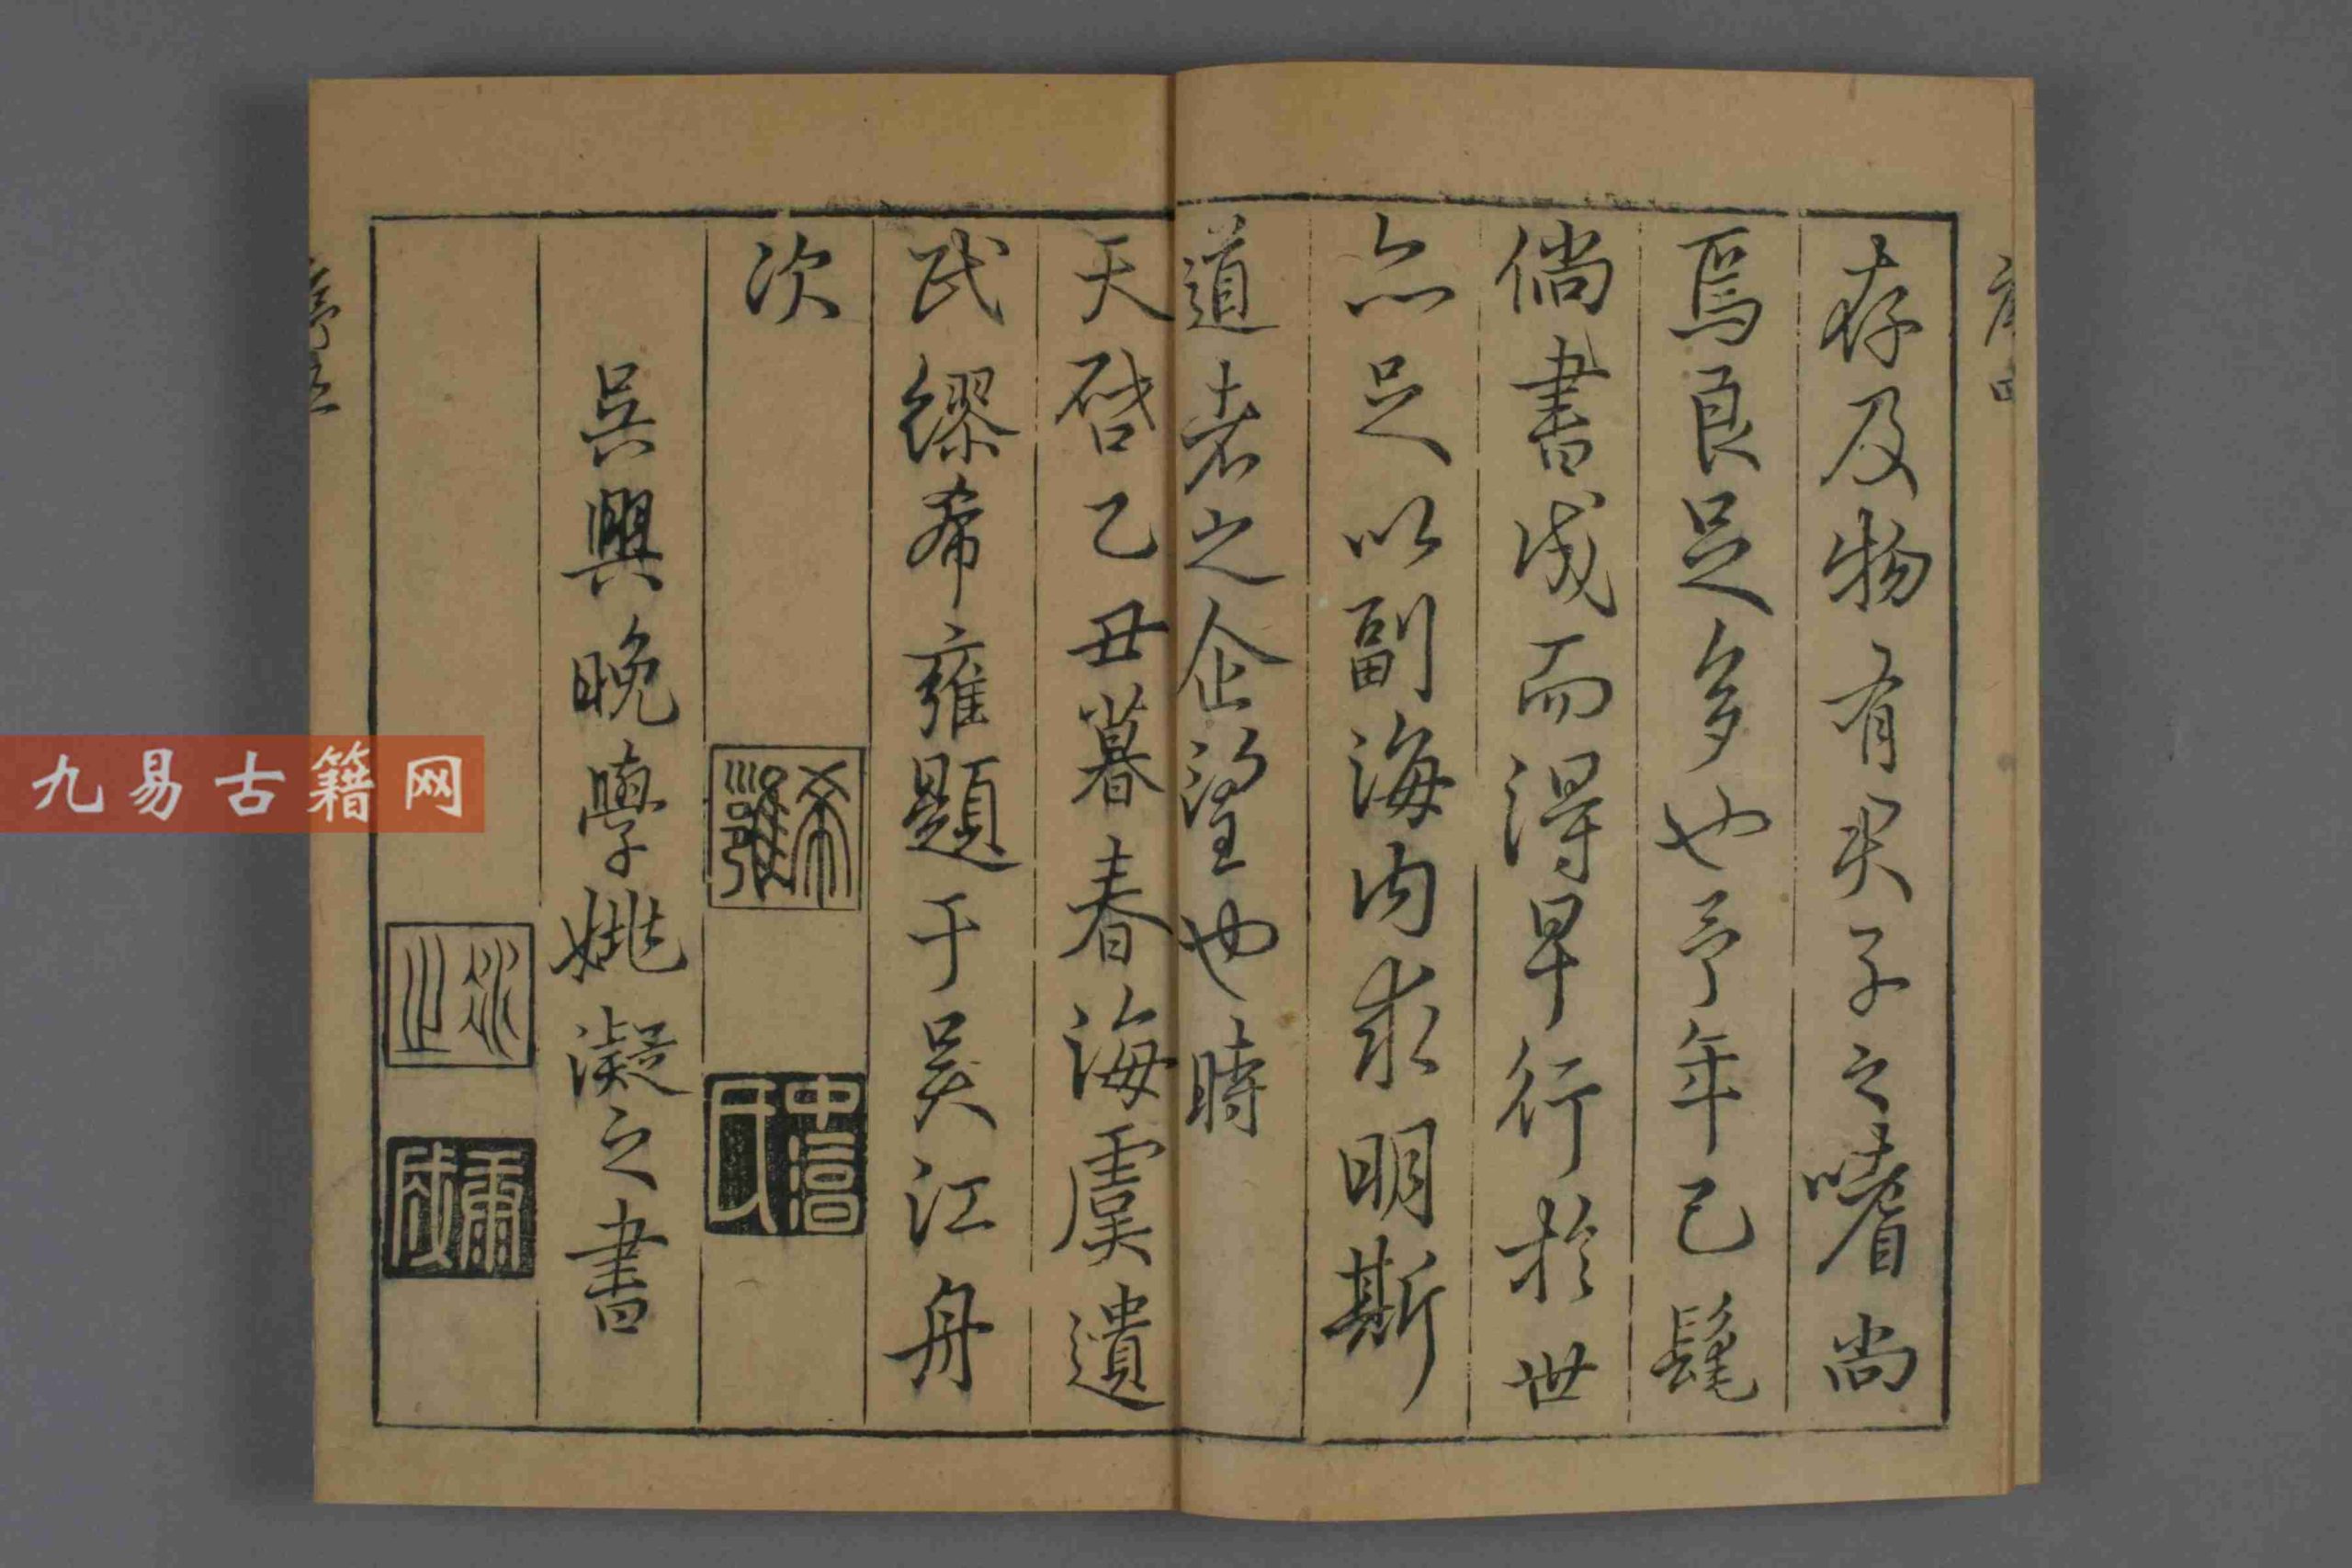 存及物有矣子之嗜尚
焉良足多也予年已髦
倘書成而得早行於世
亦足以副海内求明斯
道者之企望也時
天啓乙丑暮春海虞遺
民繆希雍題于吴江舟
次
希雍
中淳氏
吳興晚學姚凝之書
冰之
康成
序五
九易古籍网